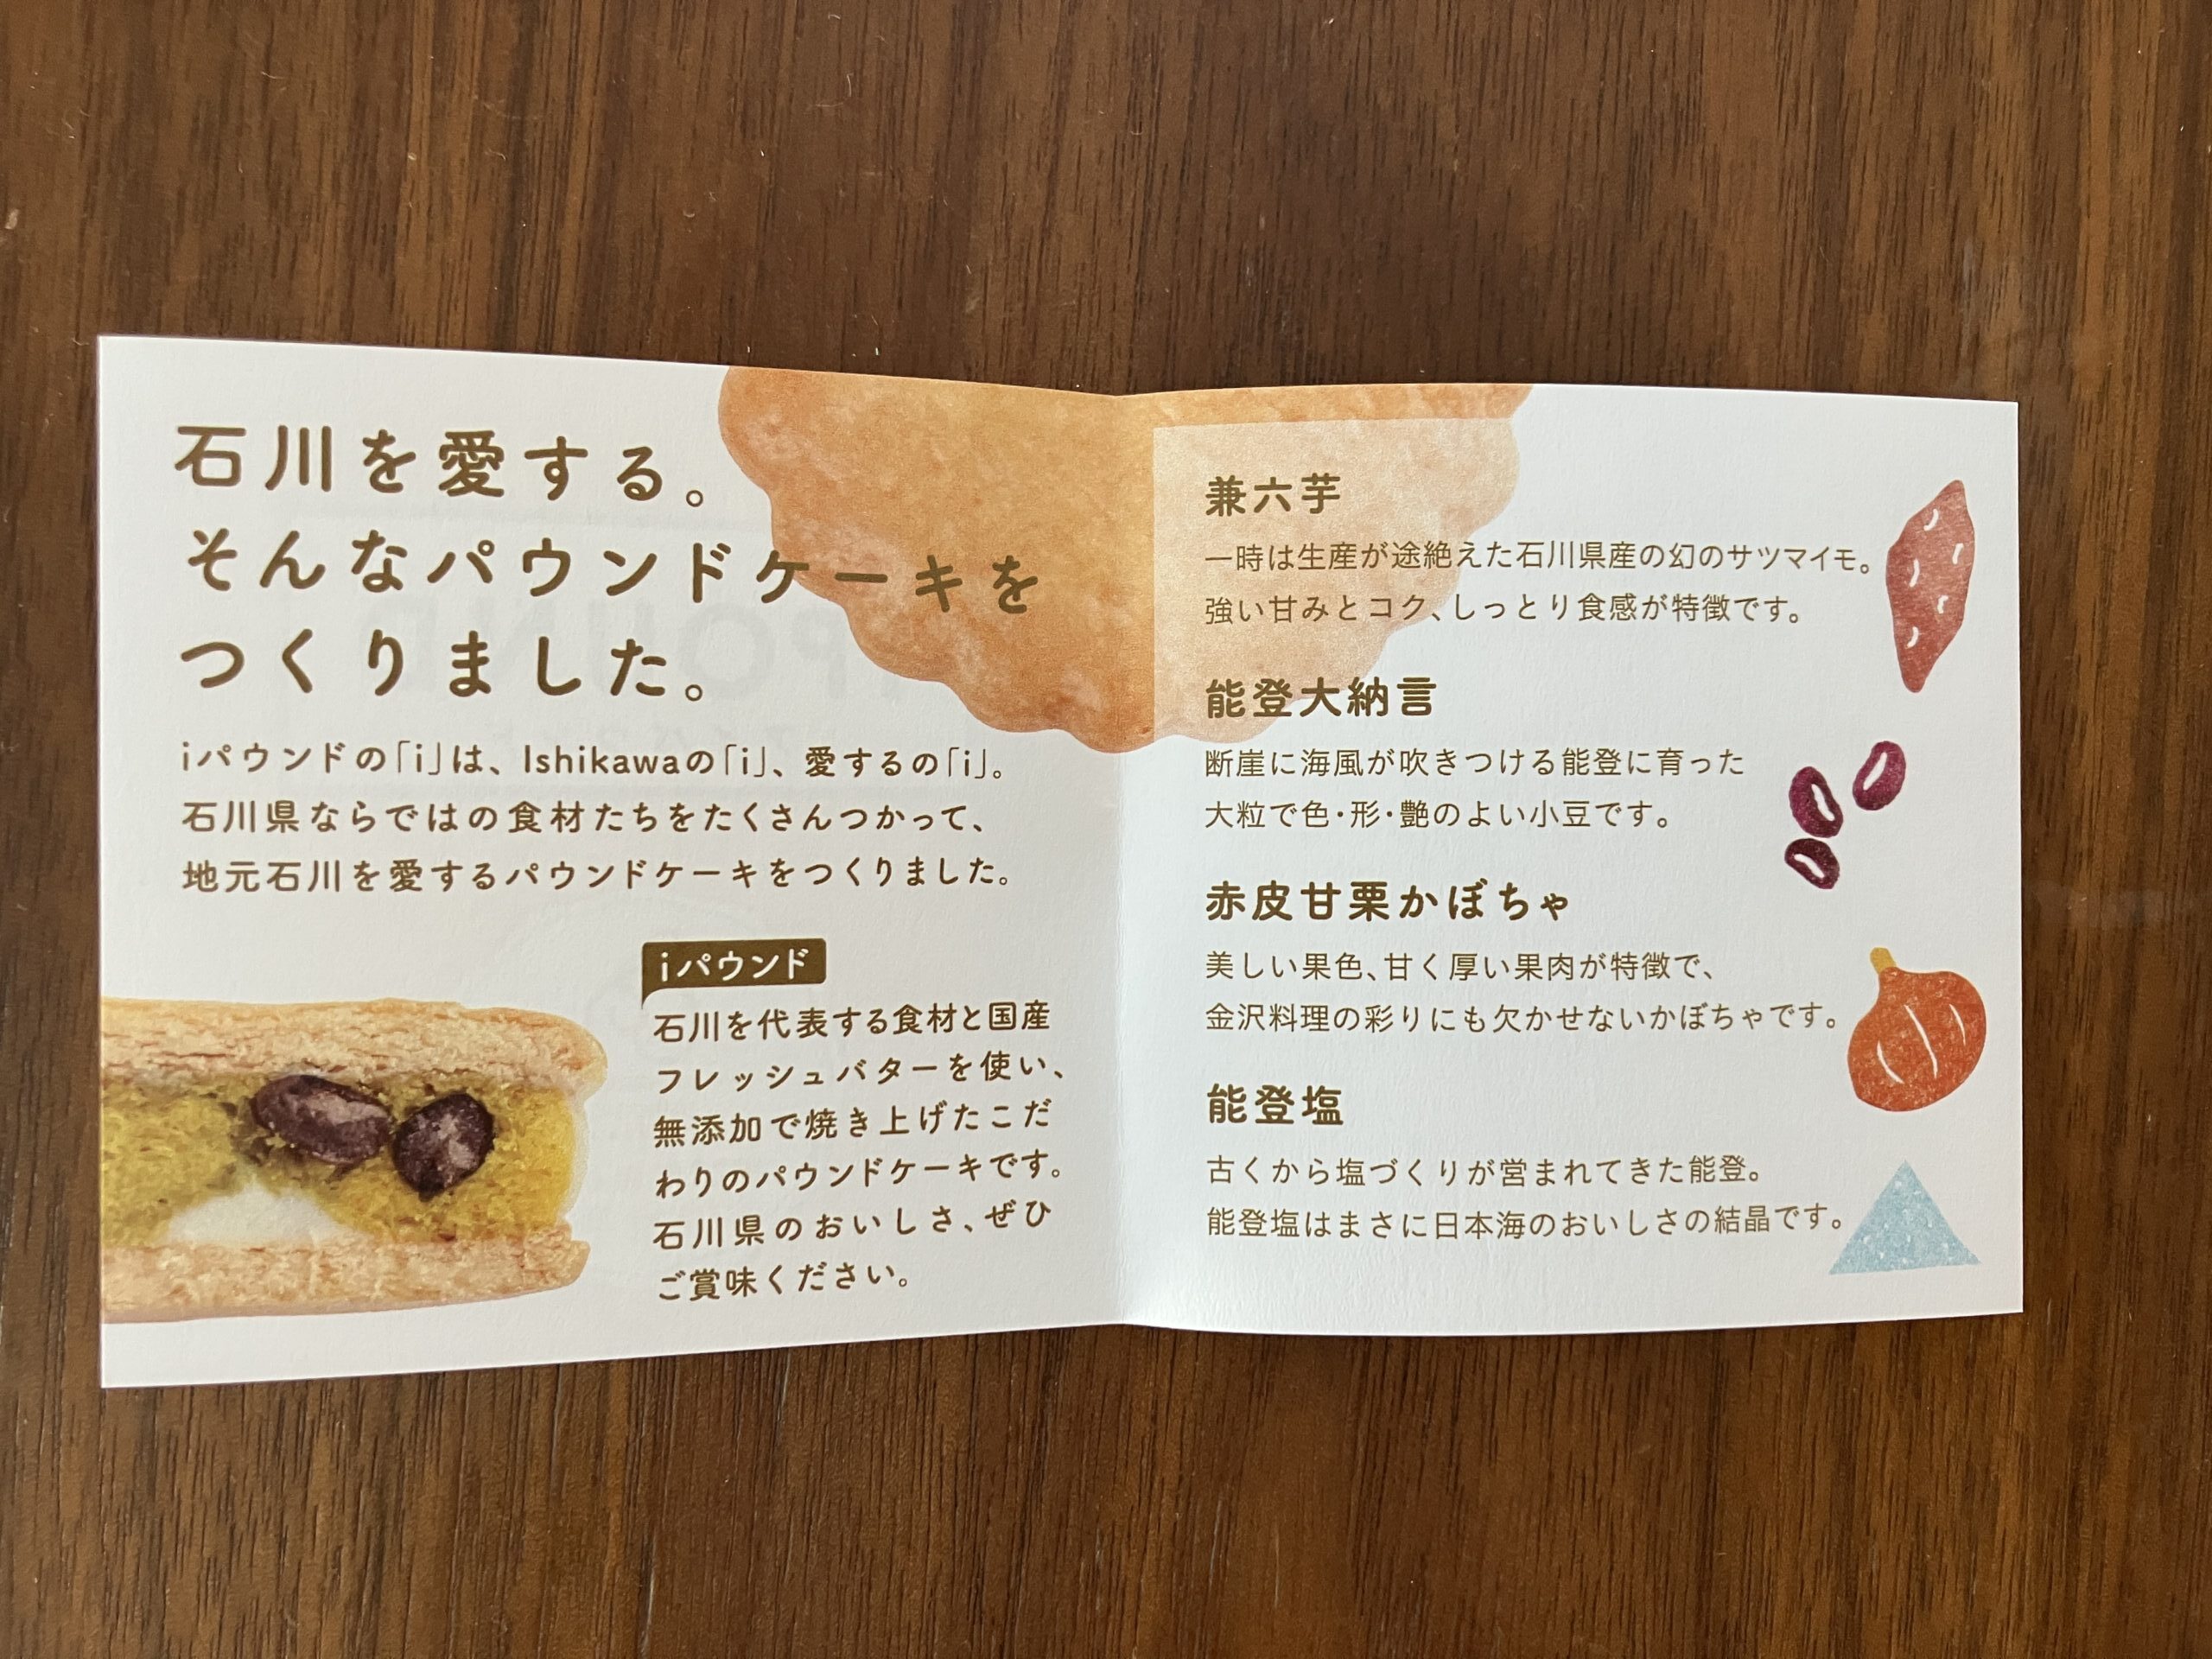 石川を愛する。
そんなパウンドケーキを
つくりました。
iパウンドの「i」は、Ishikawaの「i」、愛するの「i」。
石川県ならではの食材たちをたくさんつかって、
地元石川を愛するパウンドケーキをつくりました。
iパウンド
石川を代表する食材と国産
フレッシュバターを使い、
無添加で焼き上げたこだ
わりのパウンドケーキです。
石川県のおいしさ、ぜひ
ご賞味ください。
兼六芋
一時は生産が途絶えた石川県産の幻のサツマイモ。
強い甘みとコク、しっとり食感が特徴です。
能登大納言
断崖に海風が吹きつける能登に育った
大粒で色・形・艶のよい小豆です。
赤皮甘栗かぼちゃ
美しい果色、甘く厚い果肉が特徴で、
金沢料理の彩りにも欠かせないかぼちゃです。
能登塩
古くから塩づくりが営まれてきた能登。
能登塩はまさに日本海のおいしさの結晶です。